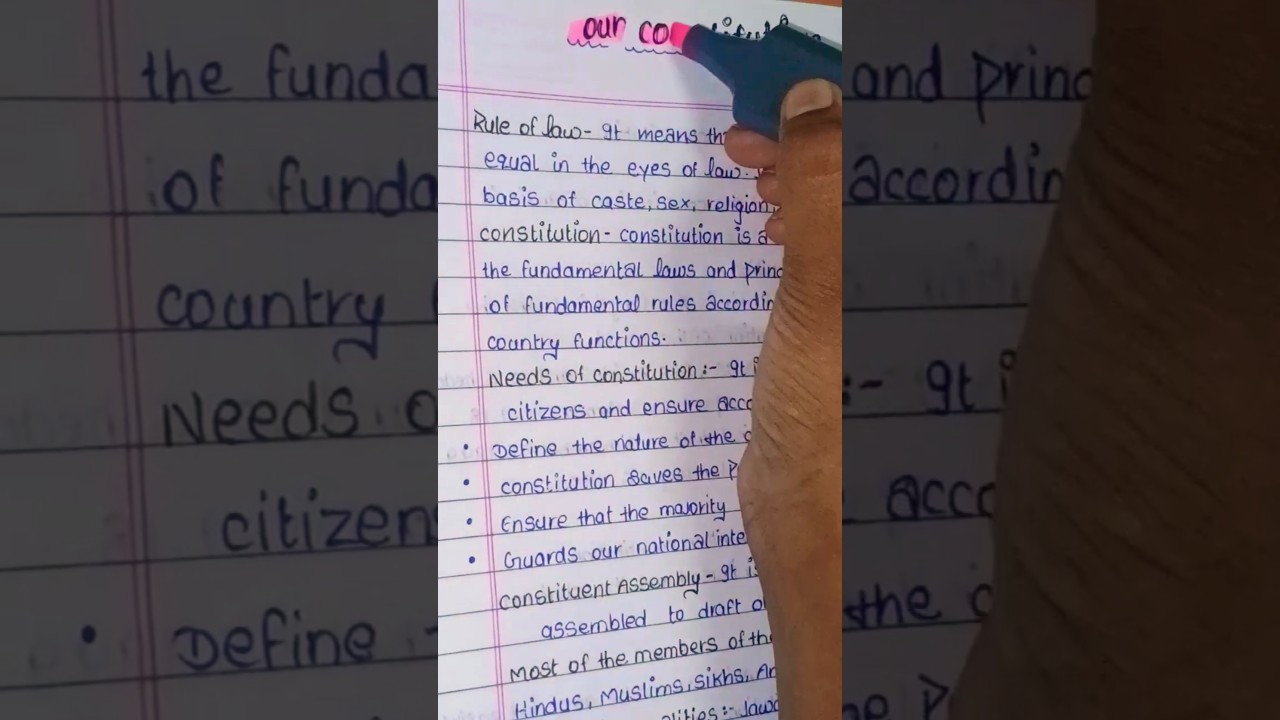 our co
Rule of law- It means th
equal in the eyes of law.
basis of caste, sex, religion,
constitution- constitution is a
the fundamental laws and princ
of fundamental rules accordin
country functions.
Needs of constitution:- It i
citizens and ensure acco
• Define the nature of the
• constitution saves the p
• Ensure that the majority
• Guards our national inte
constituent Assembly- It is
assembled to draft
Most of the members of the
Hindus, Muslims, Sikhs, An